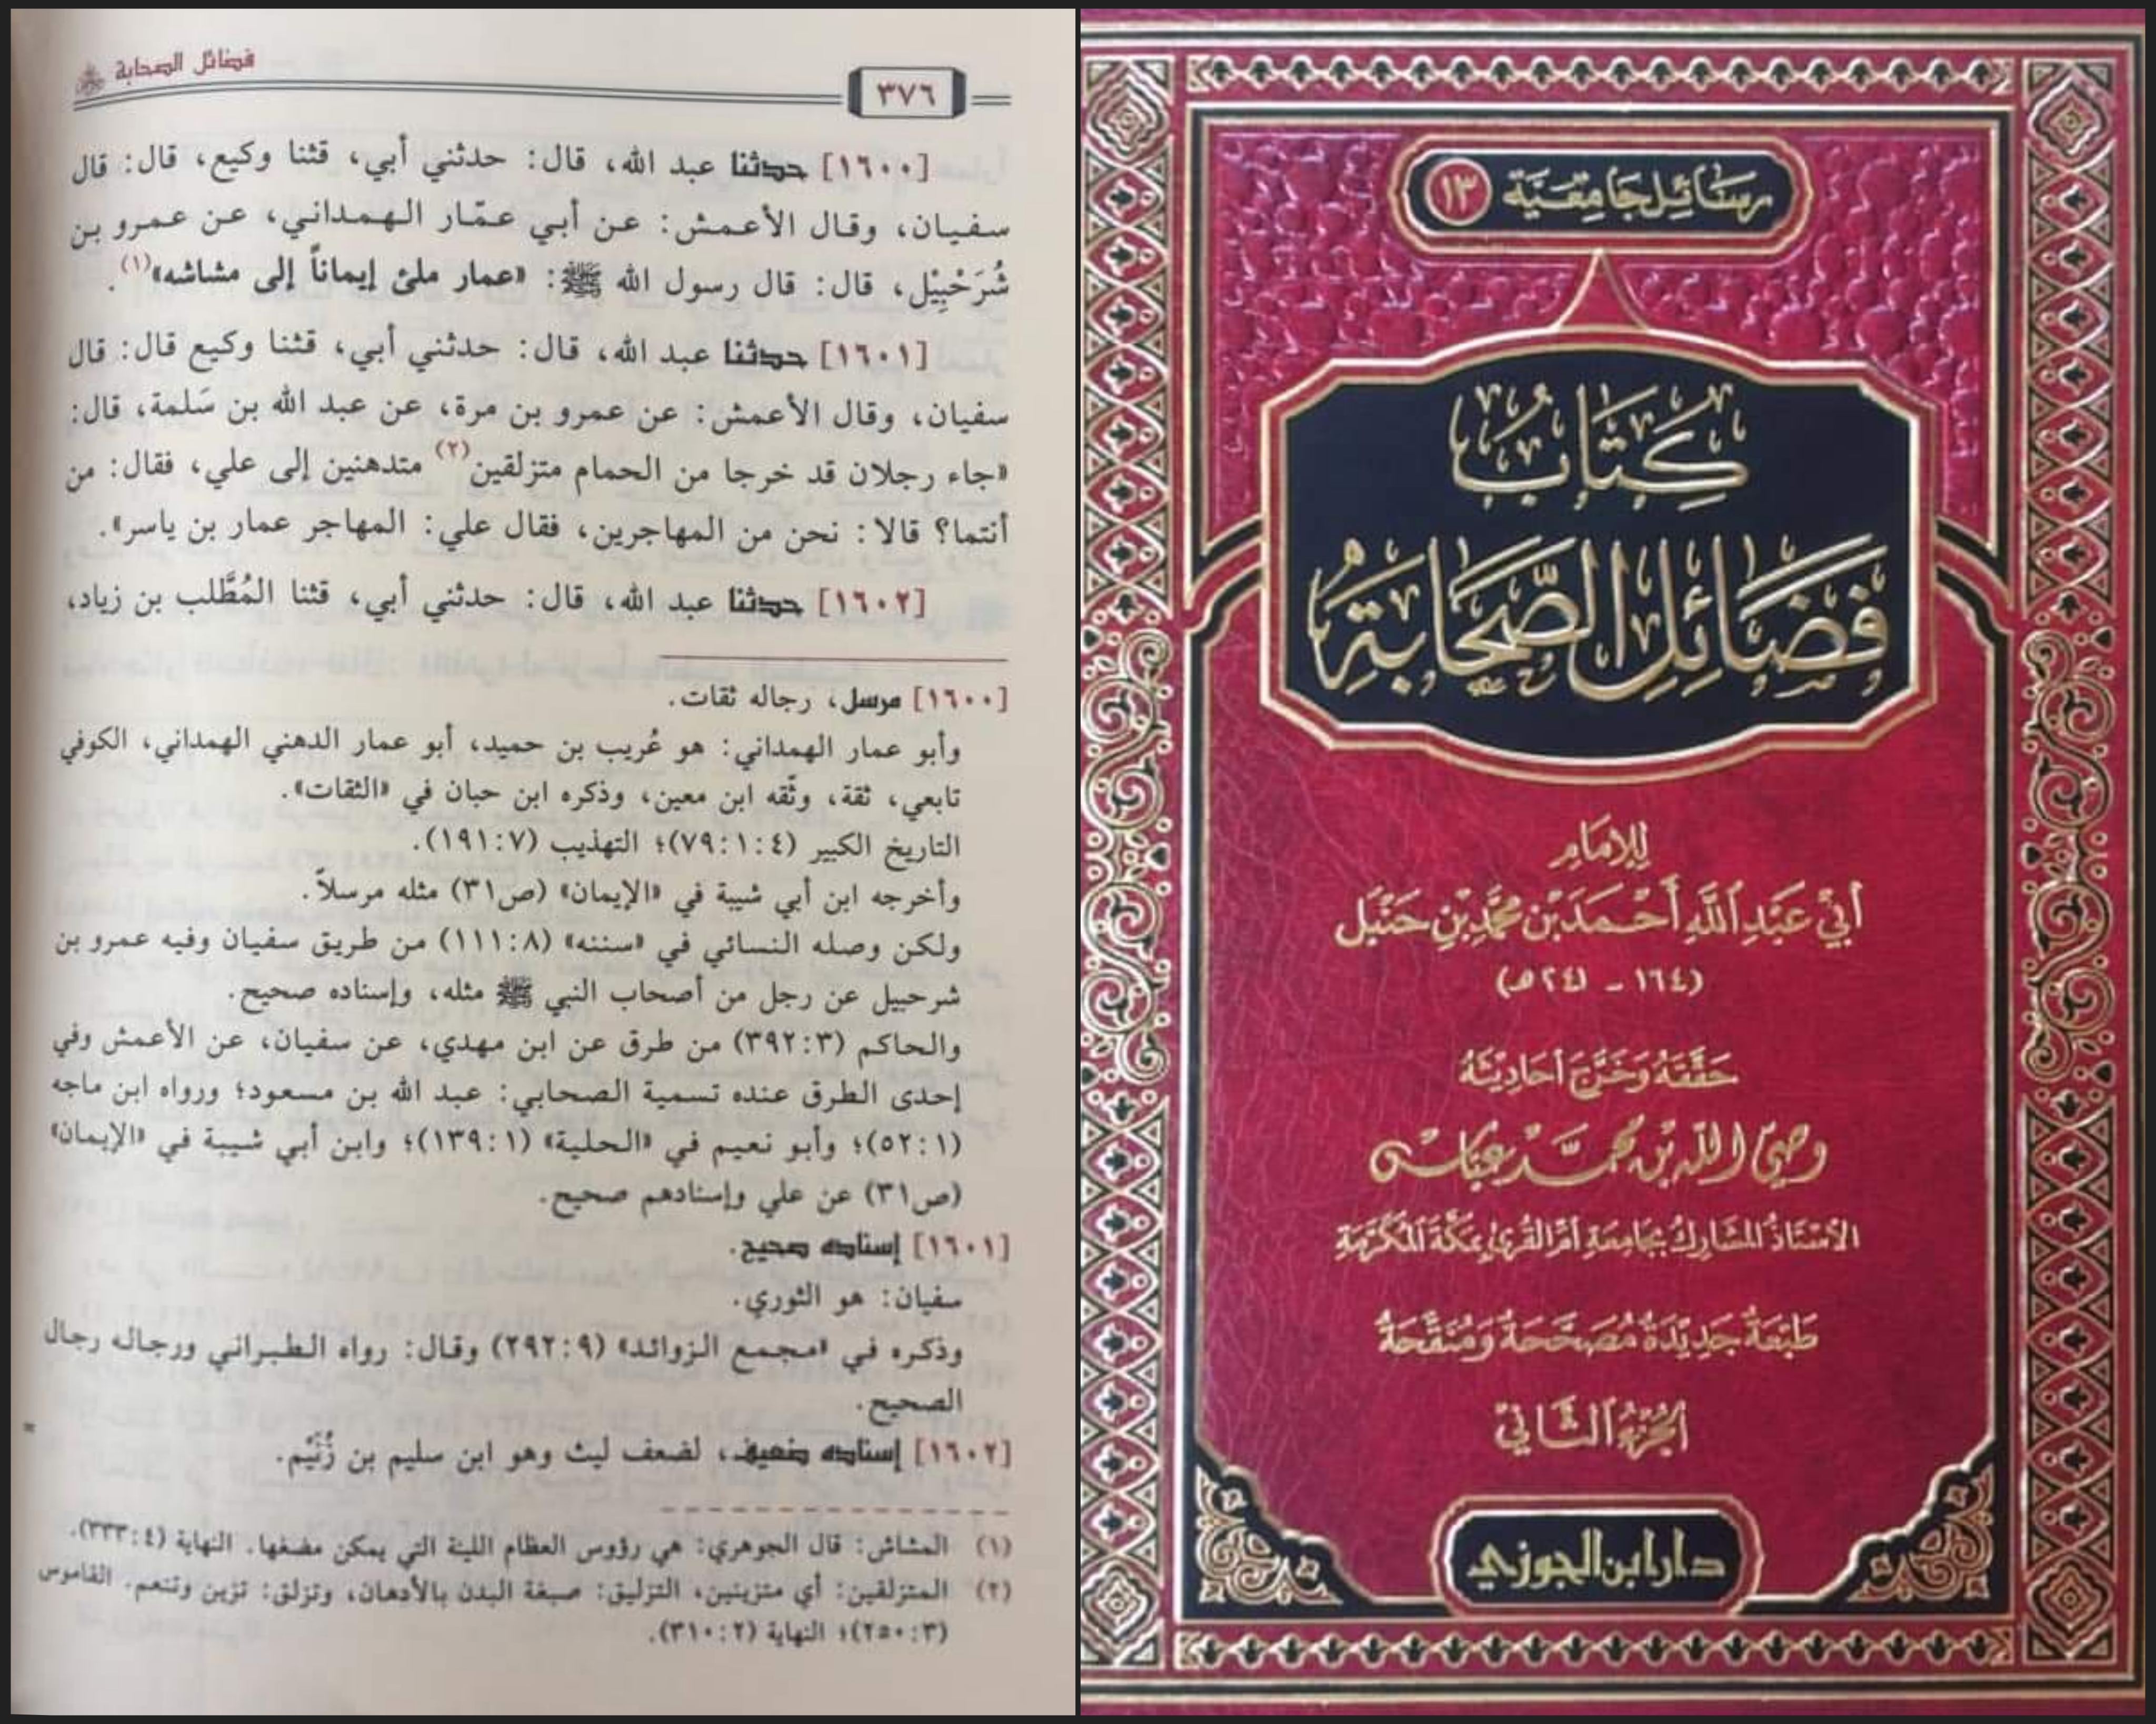 فضائل الصحابة
٣٧٦
[١٦٠٠] حدثنا عبد الله، قال: حدثني أبي، قثنا وكيع، قال: قال
سفيان، وقال الأعمش: عن أبي عمّار الهمداني، عن عمرو بن
شُرَحْبِيْل، قال: قال رسول الله ﷺ: «عمار ملئ إيماناً إلى مشاشه»(١).
[١٦٠١] حدثنا عبد الله، قال: حدثني أبي، قثنا وكيع قال: قال
سفيان، وقال الأعمش: عن عمرو بن مرة، عن عبد الله بن سَلمة، قال:
«جاء رجلان قد خرجا من الحمام متزلقين(٢) متدهنين إلى علي، فقال: من
أنتما؟ قالا: نحن من المهاجرين، فقال علي: المهاجر عمار بن ياسر».
[١٦٠٢] حدثنا عبد الله، قال: حدثني أبي، قثنا المُطَّلب بن زياد،
[١٦٠٠] مرسل، رجاله ثقات.
وأبو عمار الهمداني: هو عُريب بن حميد، أبو عمار الدهني الهمداني، الكوفي
تابعي، ثقة، وثّقه ابن معين، وذكره ابن حبان في «الثقات».
التاريخ الكبير (٤:١:٧٩)؛ التهذيب (٧:١٩١).
وأخرجه ابن أبي شيبة في «الإيمان» (ص٣١) مثله مرسلاً.
ولكن وصله النسائي في «سننه» (٨:١١١) من طريق سفيان وفيه عمرو بن
شرحبيل عن رجل من أصحاب النبي ﷺ مثله، وإسناده صحيح.
والحاكم (٣:٣٩٢) من طرق عن ابن مهدي، عن سفيان، عن الأعمش وفي
إحدى الطرق عنده تسمية الصحابي: عبد الله بن مسعود؛ ورواه ابن ماجه
(١:٥٢)؛ وأبو نعيم في «الحلية» (١:١٣٩)؛ وابن أبي شيبة في «الإيمان»
(ص٣١) عن علي وإسنادهم صحيح.
[١٦٠١] إسناده صحيح.
سفيان: هو الثوري.
وذكره في «مجمع الزوائد» (٩:٢٩٢) وقال: رواه الطبراني ورجاله رجال
الصحيح.
[١٦٠٢] إسناده ضعيف، لضعف ليث وهو ابن سليم بن زُنَيْم.
(١) المشاش: قال الجوهري: هي رؤوس العظام اللينة التي يمكن مضغها. النهاية (٤:٣٣٣).
(٢) المتزلقين: أي متزينين، التزليق: صبغة البدن بالأدهان، وتزلق: تزين وتنعم. القاموس
(٣:٢٥٠)؛ النهاية (٢:٣١٠).
رسائل جامعية ١٣
كتاب
فضائل الصحابة
للإمام
أبي عبد الله أحمد بن محمد بن حنبل
(١٦٤ - ٢٤١هـ)
حققه وخرج أحاديثه
وصي الله بن محمد عباس
الأستاذ المشارك بجامعة أم القرى بمكة المكرمة
طبعة جديدة مصححة ومنقحة
الجزء الثاني
دار ابن الجوزي